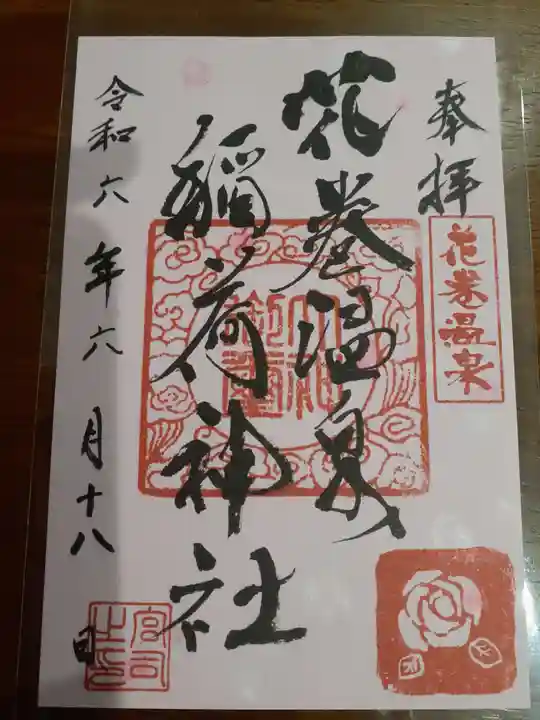 奉拝
花巻温泉
花巻温泉
稲荷神社
令和六年六月十八日
宮司之印